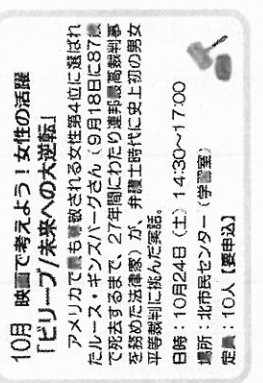 10月 映画で考えよう!女性の活躍
「ビリーブ/未来への大逆転」
アメリカで最も尊敬される女性第4位に選ばれ
たルース・ギンズバーグさん(9月18日に87歳
で死去するまで、27年間にわたり連邦最高裁判事
を務めた法律家)が、弁護士時代に史上初の男女
平等裁判に挑んだ実話。
日時:10月24日(土)14:30~17:00
場所:北市民センター(学習室)
定員:10人【要申込】